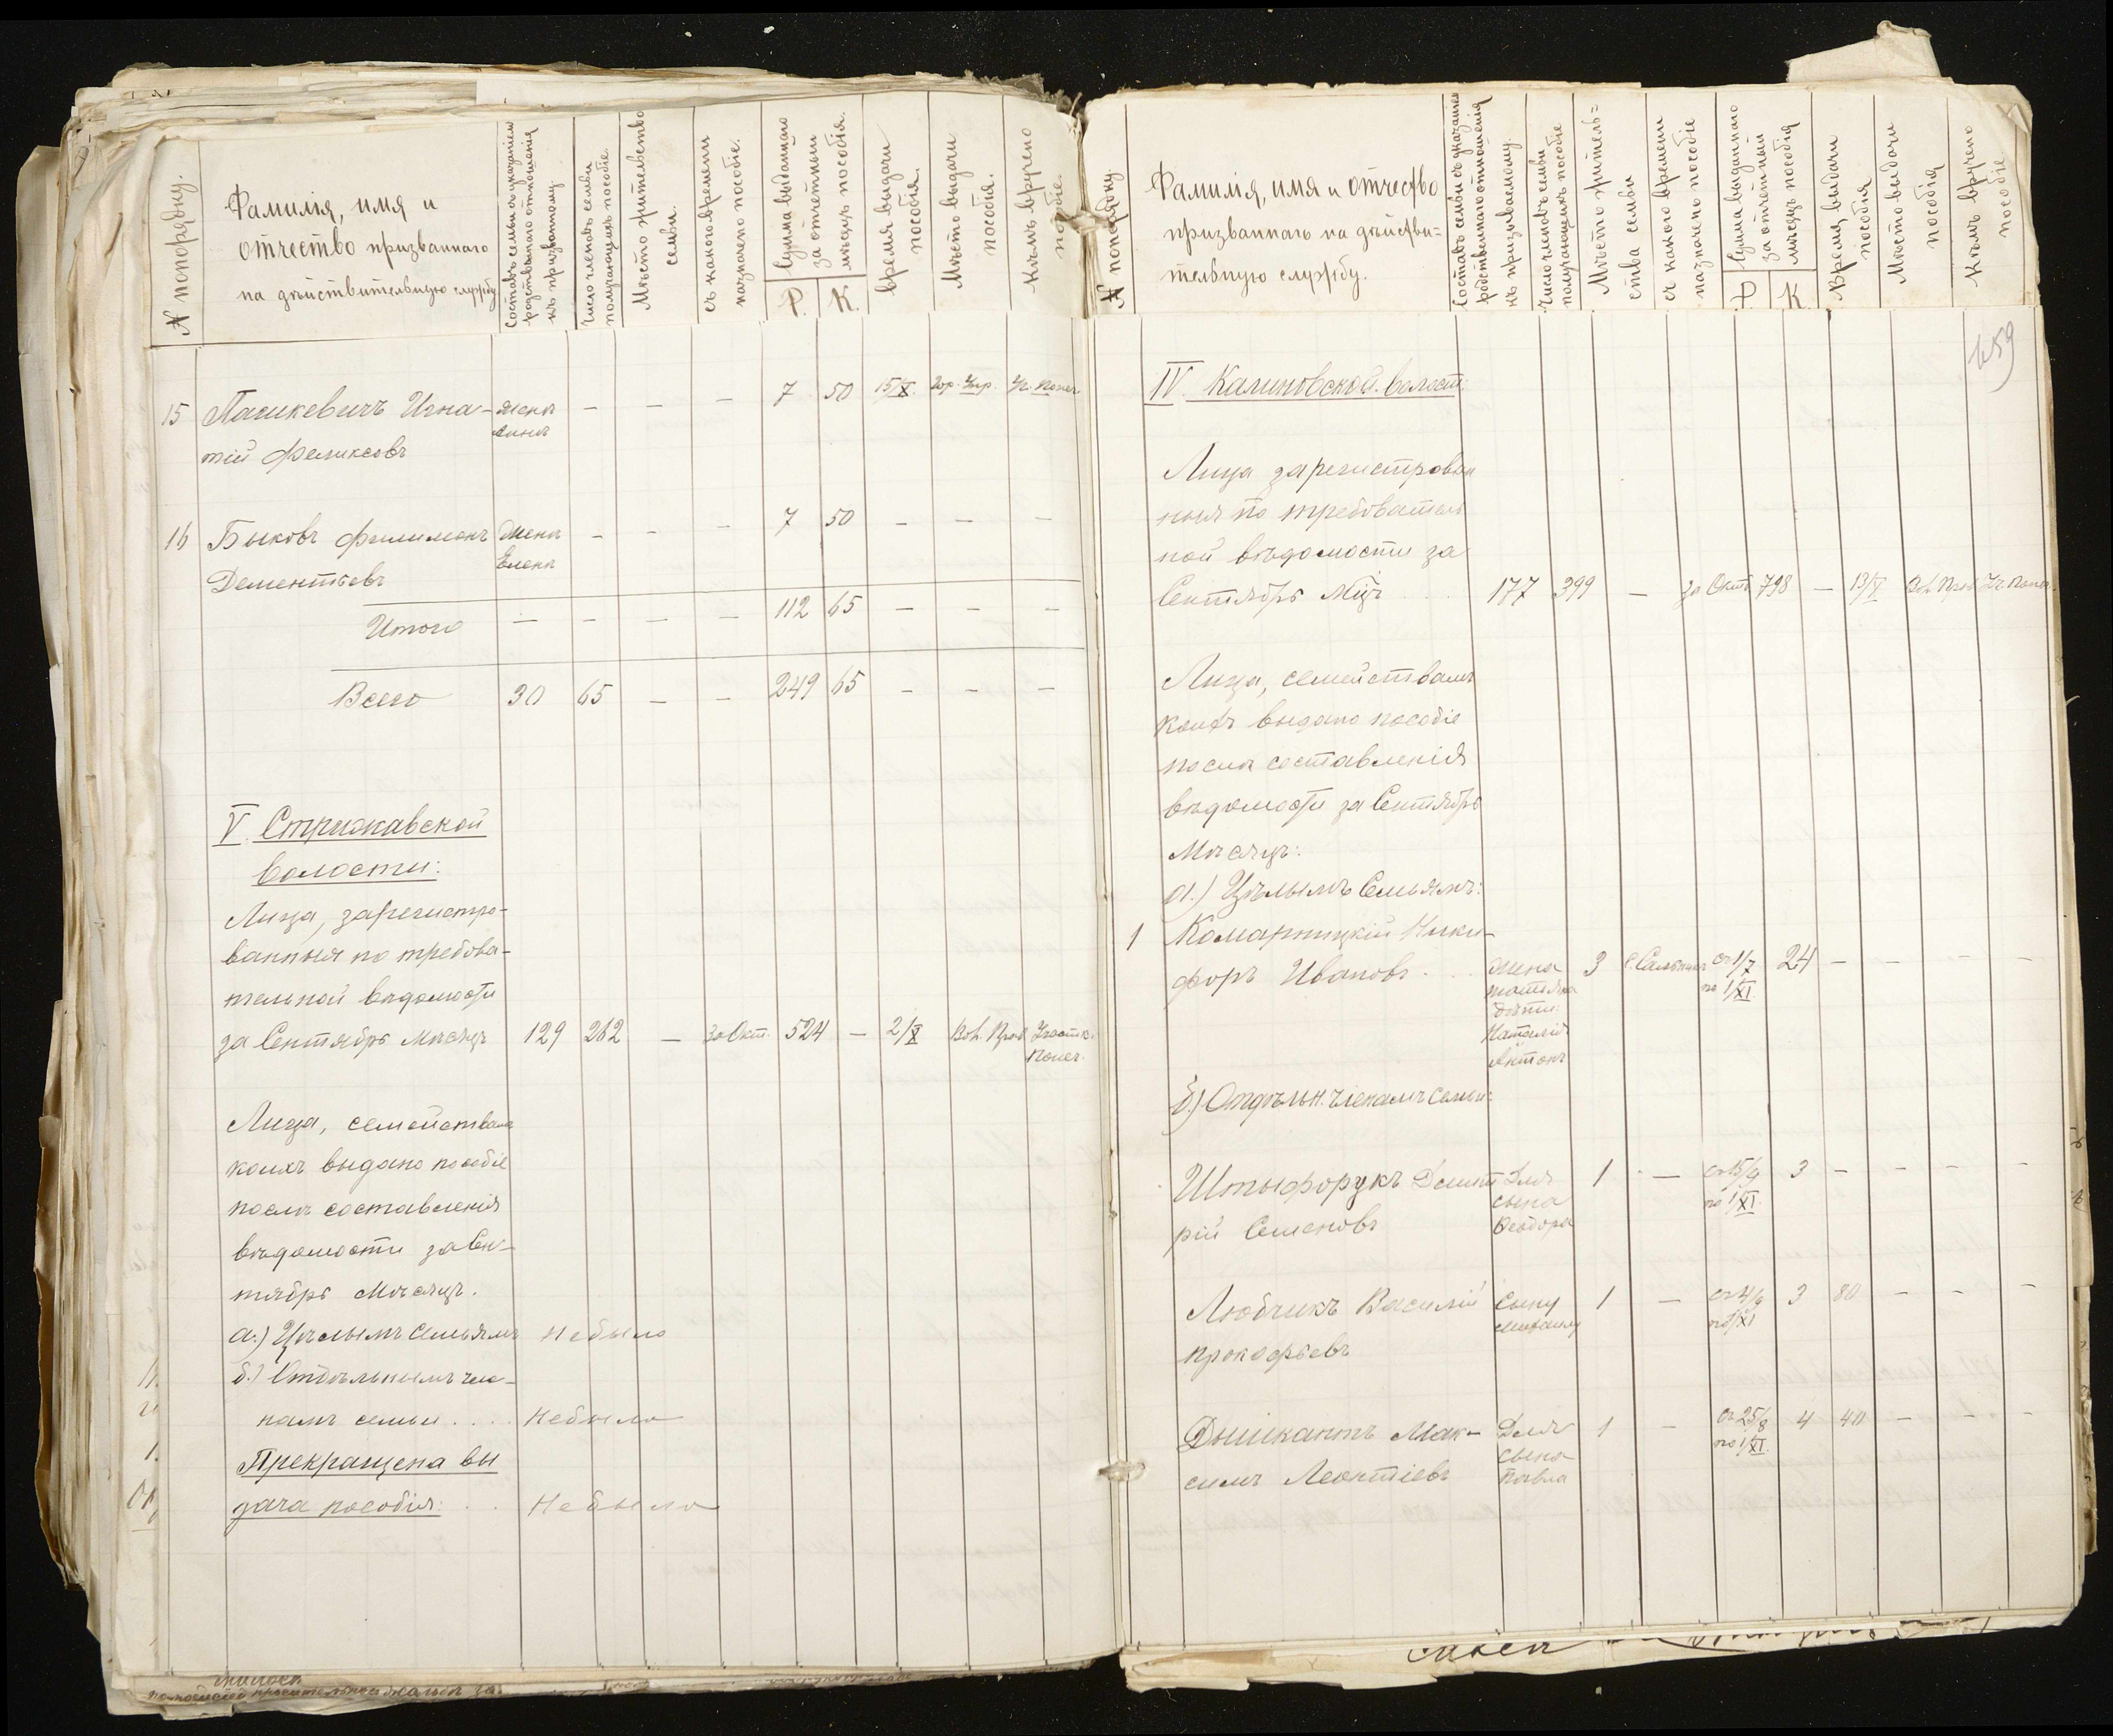 № попорядку.
Фамилія, имя и
отчество призваннаго
на действительную службу
Составъ семьи съ указаніемъ
родственнаго отношенія
къ призванному.
Число членовъ семьи
получающихъ пособіе.
Мѣсто жительства
семьи.
съ какого времени
назначено пособіе.
Сумма выданнаго
за отчетный
мѣсяцъ пособія.
Р. К.
Время выдачи
пособія.
Мѣсто выдачи
пособія.
Кѣмъ вручено
пособіе.
15 Пашкевичъ Игна- жена — — — 7 50 15/X Гор. Упр. Уч. Попеч.
тій Феликсовъ
16 Быковъ Филимонъ Жена — — — 7 50 — — —
Дементьевъ Елена
Итого — — — — 112 65 — — —
Всего 30 65 — — 249 65 — — —
V. Стрижавской
волости:
Лица, зарегистро-
ванныя по требова-
тельной вѣдомости
за Сентябрь мѣсяцъ 129 262 — за Окт. 524 — 2/X Вол. Прав. Участк.
Попеч.
Лица, семействамъ
коихъ выдано пособіе
послѣ составленія
вѣдомости за Сен-
тябрь мѣсяцъ.
а.) Цѣлымъ семьямъ Небыло
б.) Отдѣльнымъ чле-
намъ семьи . . . . Небыло
Прекращена вы
дача пособія: . . Небыло
№ попорядку
Фамилія, имя и отчество
призваннаго на дѣйстви=
тельную службу.
Составъ семьи съ указаніемъ
родственнаго отношенія
къ призываемому.
Число членовъ семьи
получающихъ пособіе
Мѣсто житель=
ства семьи
съ какого времени
назначено пособіе
Сумма выданнаго
за отчетный
мѣсяцъ пособія
Р. К.
Время, выдачи
пособія
Мѣсто выдачи
пособія
Кѣмъ вручено
пособіе.
659
IV. Калиновской. волости:
Лица зарегистрован
ныя по требователь
ной вѣдомости за
Сентябрь Мцъ . . . 177 399 — за Окт. 798 — 13/X Вол. Прав. Уч. Попеч.
Лица, семействамъ
коихъ выдано пособіе
послѣ составленія
вѣдомости за Сентябрь
мѣсяцъ:
а.) Цѣлымъ Семьямъ:
1 Комарницкій Ники-
форъ Ивановъ . . . жена 3 с. съ 1/7 24 — — — —
Татьяна по 1/XI.
дѣти:
Наталія
Антонъ
б.) Отдѣльн. членамъ семьи:
Штыфорукъ Дмит Для 1 — съ 15/9 3 — — — —
рій Семеновъ сына по 1/XI.
Ѳеодора
Любчикъ Василій Сыну 1 — 3 80 — — —
Прокофьевъ по 1/XI
Дышкантъ Мак- Для 1 — съ 25/8 4 40 — — —
симъ Леонтіевъ сына по 1/XI.
Павла